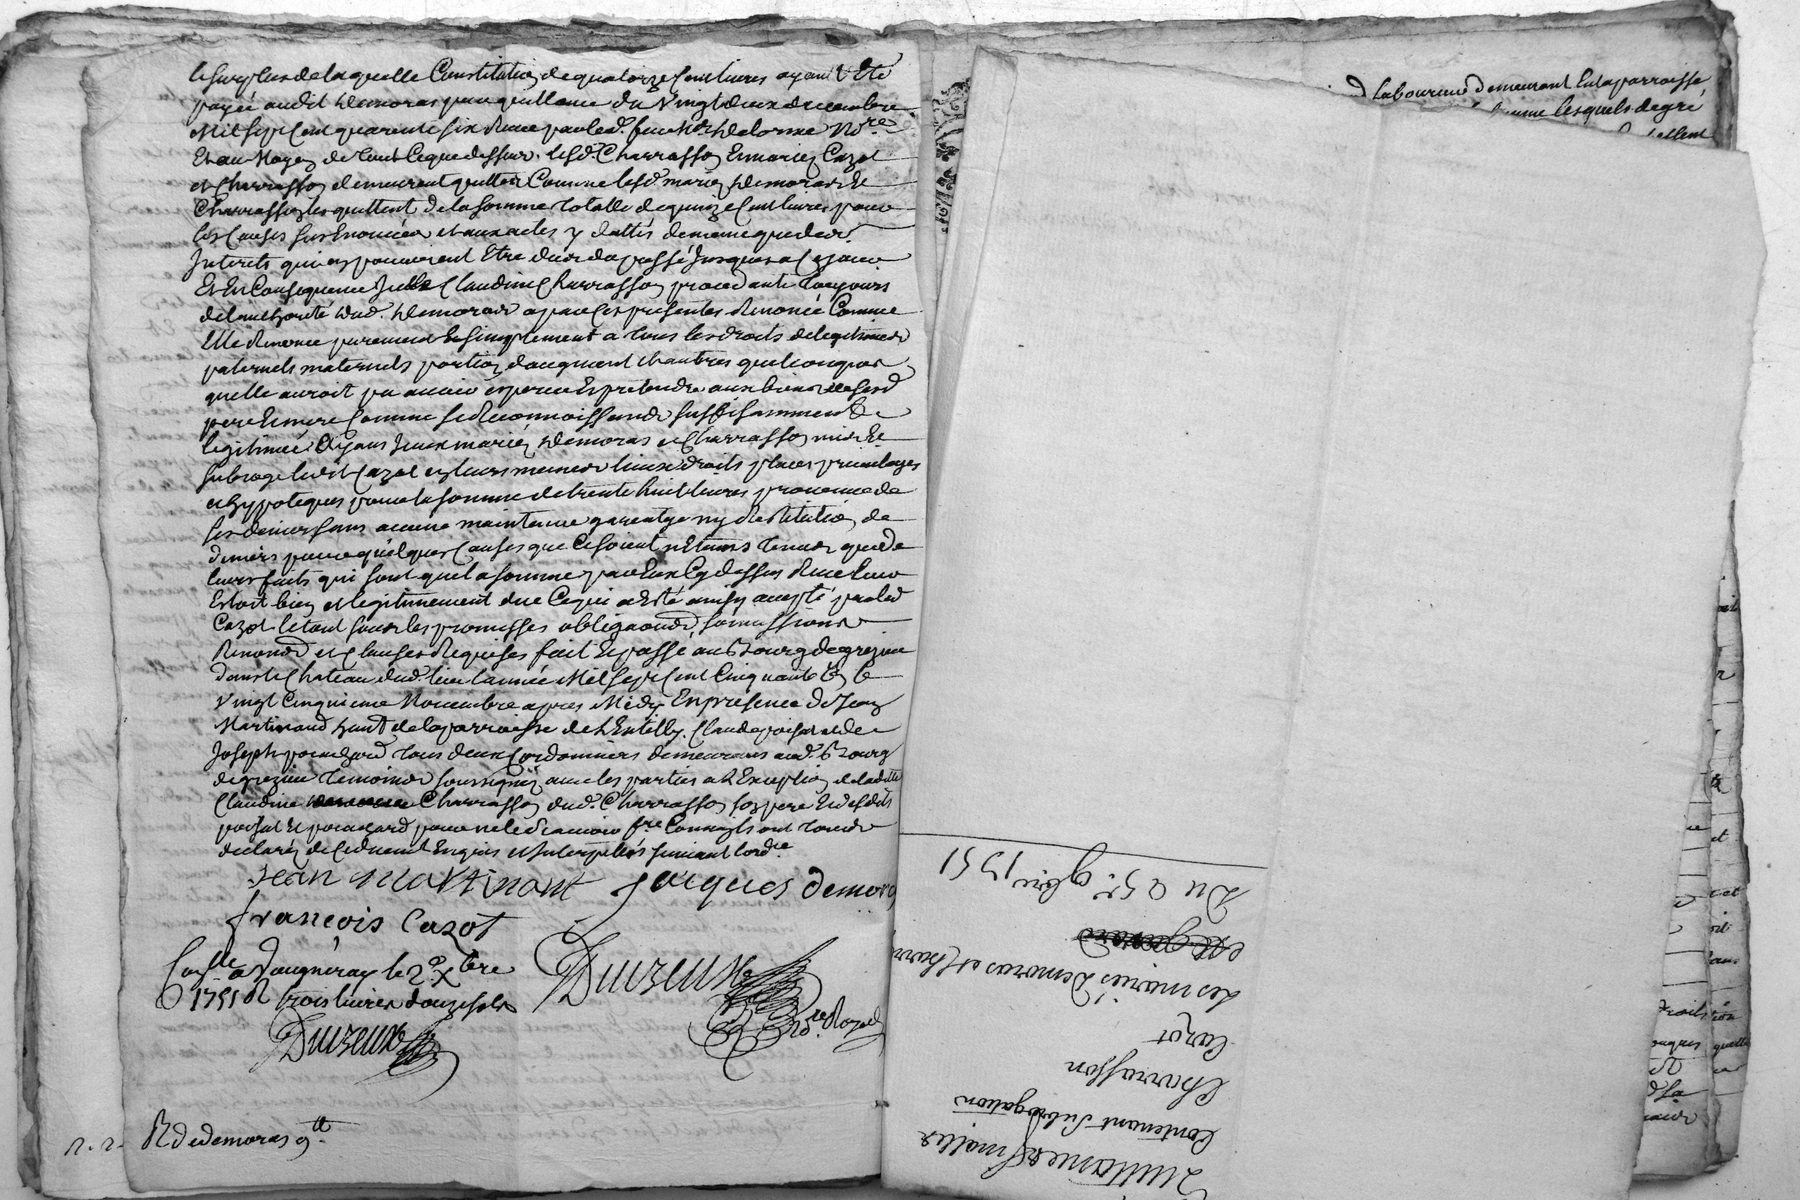 le surplus de laquelle Constitution de quatorze Cent livres ayant Eté
payée audit demoras par quittance du vingt deux decembre
Mil Sept Cent quarante six Receue par led. feu Me Delorme Nre
Et au Moyen de tout Ce que dessus, lesd. Charrasson Et mariez Cazot
et Charrasson demeurent quittes Comme lesd. mariez demoras Et
Charrasson les quittent de la somme totalle de quinze Cent livres pour
les Causes sus Enoncées et aux actes y dattés de meme que des
Interets qui en pouvoient Etre dus du passé jusques a Ce jour
Et En Consequence Icelle Claudine Charrasson procedante toujours
de l'authorité dud. demoras a par Ces presentes Renoncé Comme
Elle Renonce purement Et simplement a tous les droits de legitimes
paternels maternels portion d'augment Et autres quelconques
quelle auroit pu avoir esperer Et pretendre aux biens de sesd.
pere Et mere Comme se Reconnoissant suffisamment
legitimée Ayans Iceux mariez demoras et Charrasson mis Et
subrogé ledit Cazot en leurs memes lieux droits places privileges
et hypoteques pour la somme de trente huit livres provenue de
ses deniers sans aucune maintenue garentye ny Restitution de
deniers pour quelques Causes que Ce soient n'Etans tenus que de
leurs faits qui sont que la somme par Eux Cy dessus Receue leur
Estoit bien et legitimement due Ce qui a Esté ainsy accepté par led.
Cazot le tout sous les promesses obligaons soumissions
Renonons et Clauses Requises fait Et passé au Bourg de grezieu
dans le Chateau dud. lieu l'année Mil Sept Cent Cinquante Un le
vingt Cinquieme Novembre apres Midy En presence de Jean
Martinand hant de la parroisse de Claude poisat et de
Joseph pouchard tous deux Cordonniers demeurans aud. Bourg
de grezieu temoins soussignez avec les parties a l'Exception de ladte
Claudine Charrasson dud. Charrasson son pere Et desdits
poisat Et pouchard pour ne le sçavoir fre Comme ils ont tous
declaré de Ce duement Enquis et Interpellés suivant l'ordce
Jean Martinant Jacques demoras
françois Cazot
Conllé a Vaugneray le 2e Xbre
1751 R trois livres douze sols
Duizeux
Duizeux
Nre Royal
R de demoras 9tt
d Laboureur demeurant En la parroisse
lesquels de gré
Du 25e 9bre 1751
des mariés Demoras et Charr
Cazot
Charrasson
Contenant Subrogation
Quittance finalle